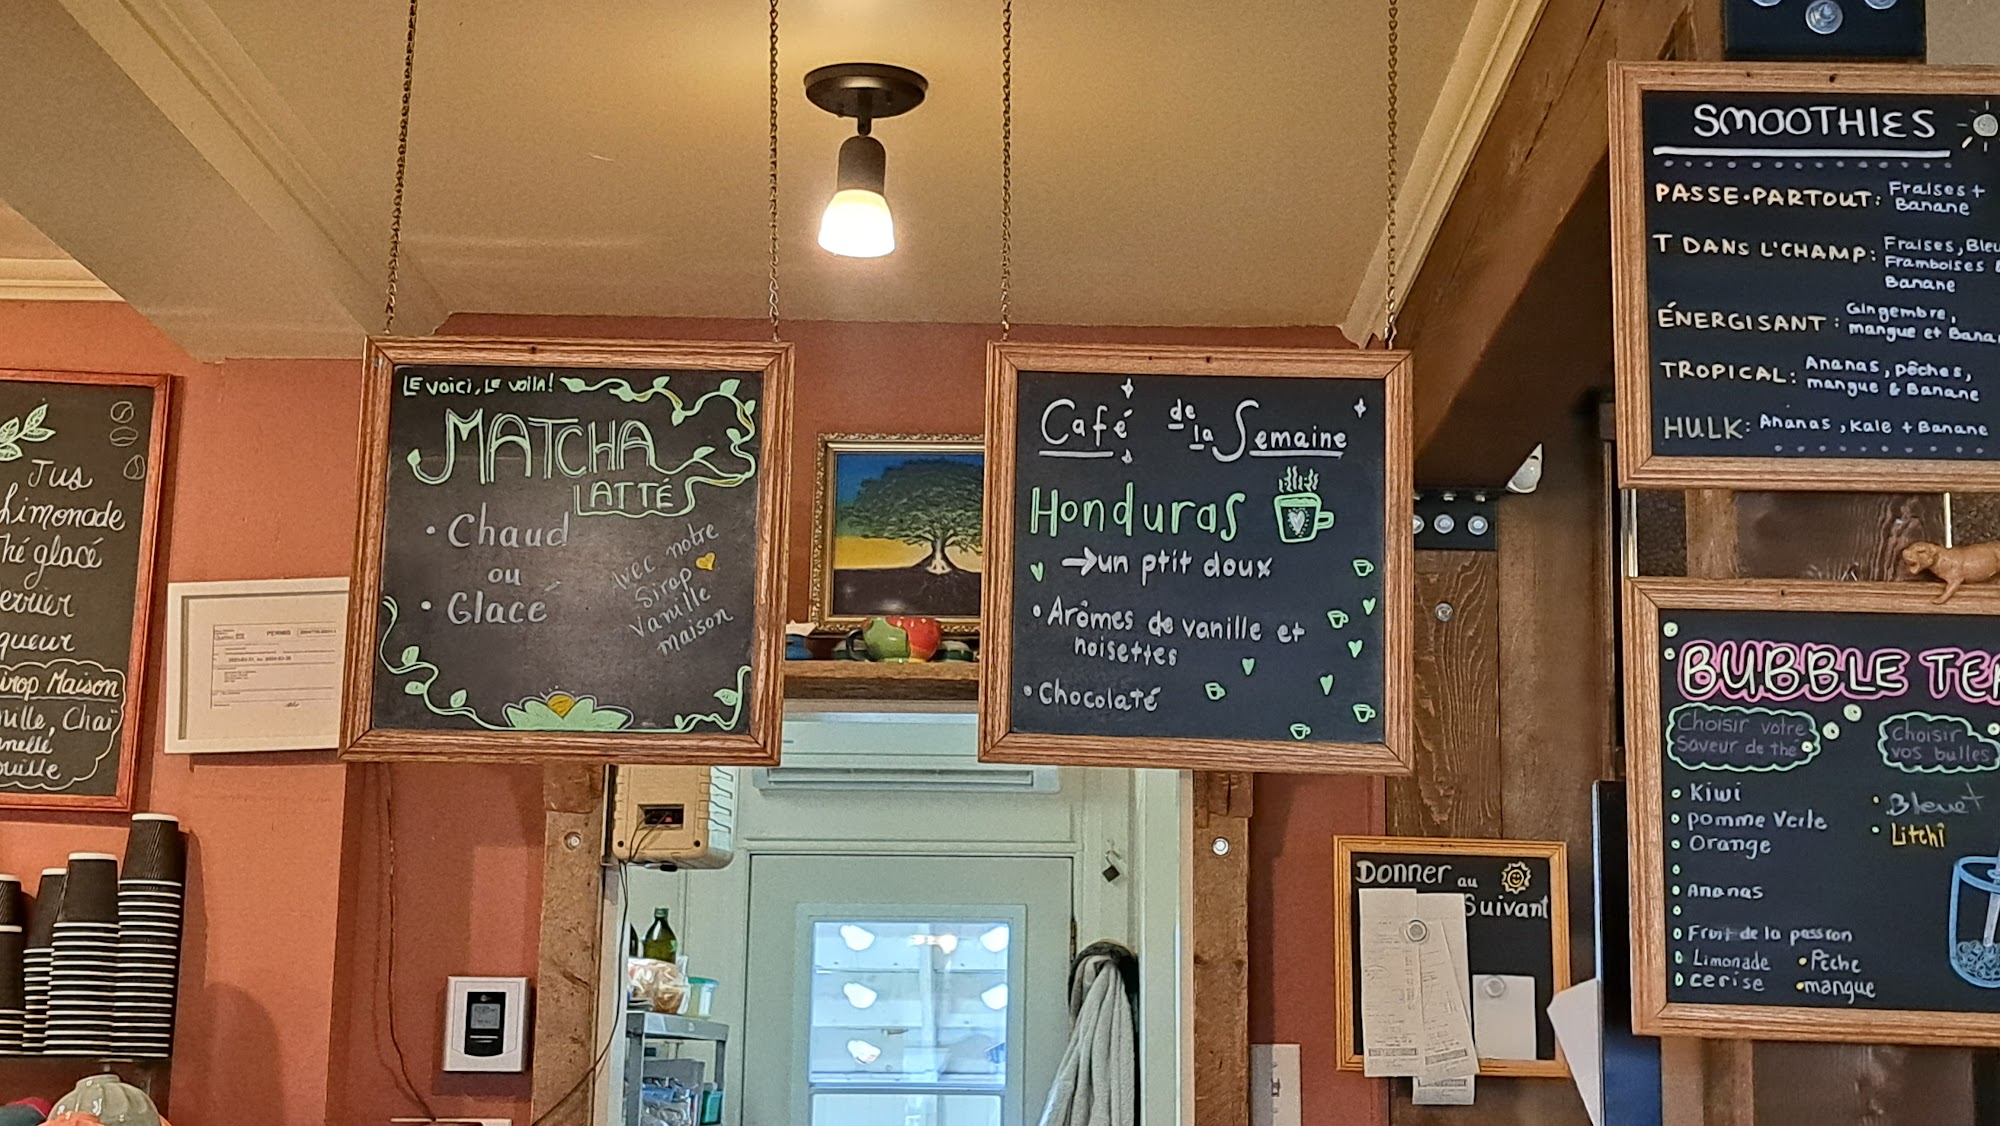 Jus
Limonade
Thé glacé
Perrier
Liqueur
Sirop Maison
Vanille, Chaï
PERMIS
LE VOICI, LE VOILÀ!
MATCHA
LATTÉS
• Chaud
ou
• Glacé
Avec notre
Sirop
Vanille
maison
Café de la Semaine
Honduras
→un ptit doux
• Arômes de vanille et
noisettes
• Chocolaté
SMOOTHIES
PASSE•PARTOUT: Fraises +
Banane
T DANS L'CHAMP: Fraises, Bleu
Framboises &
Banane
ÉNERGISANT: Gingembre,
mangue et Bana
TROPICAL: Ananas, pêches,
mangue & Banane
HULK: Ananas, Kale + Banane
BUBBLE TE
Choisir votre
Saveur de thé
Kiwi
pomme Verte
Orange
Ananas
Fruit de la passion
Limonade
cerise
Choisir
vos bulles
• Bleuet
• Litchi
• Pêche
• mangue
Donner au
Suivant